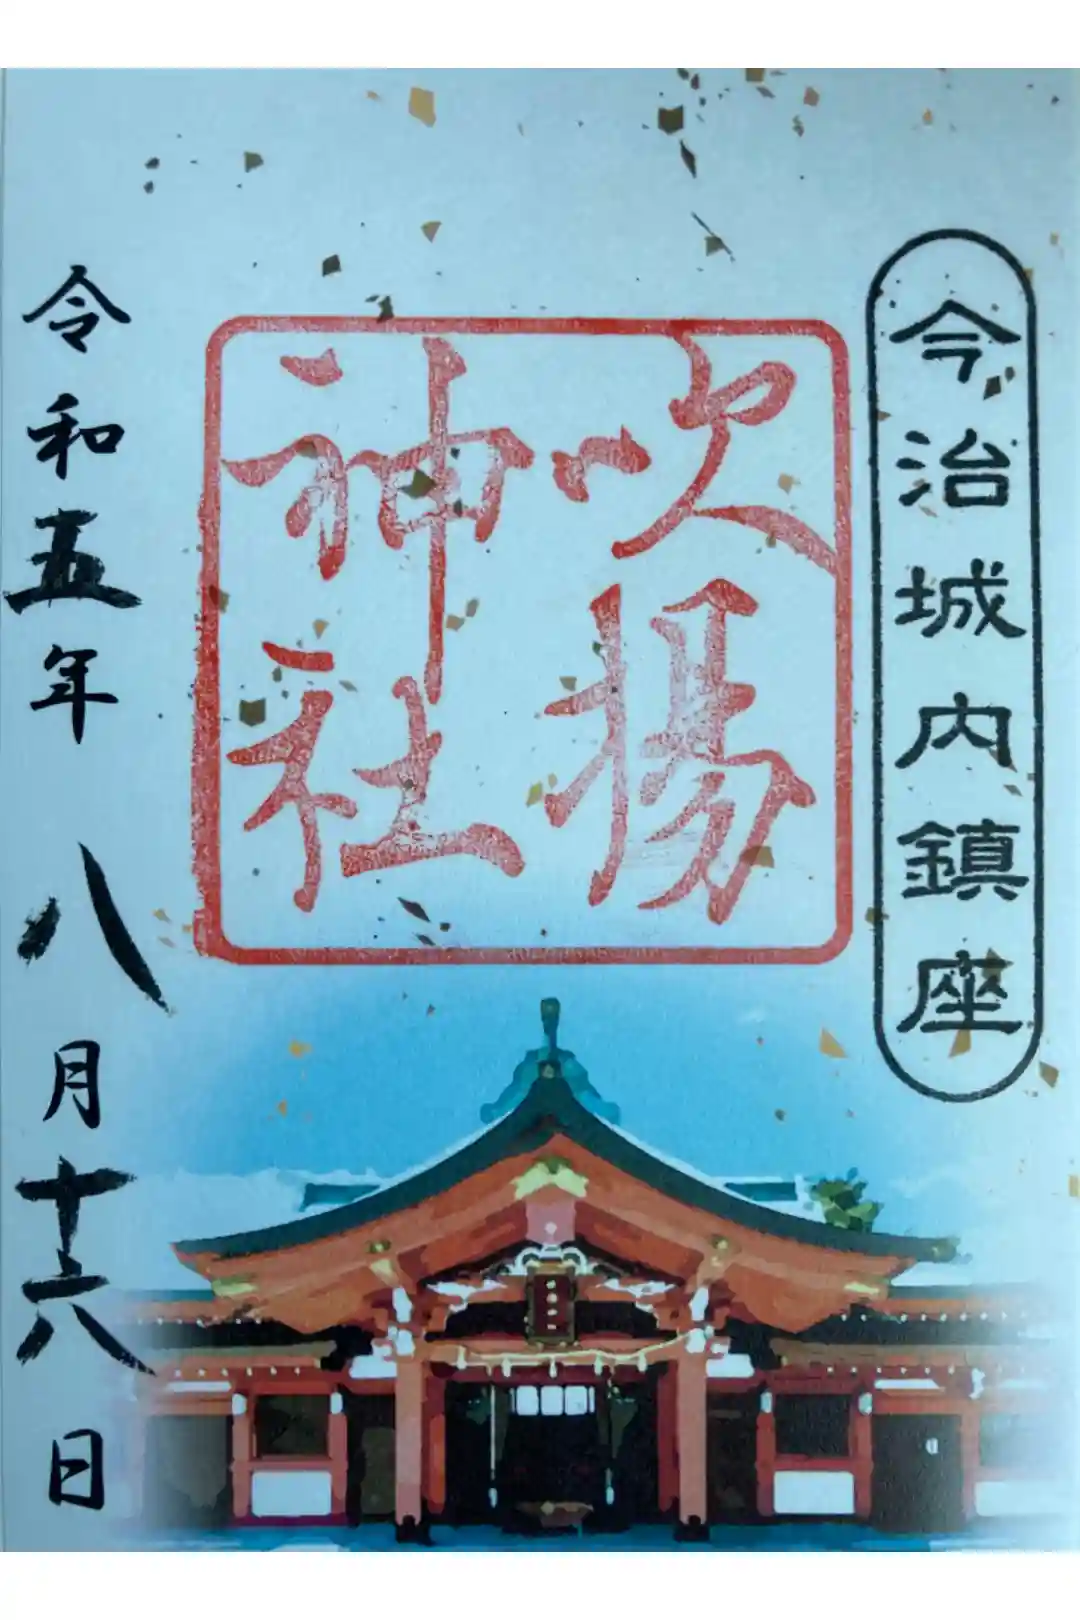 今治城内鎮座
吹揚
神社
令和五年八月十六日